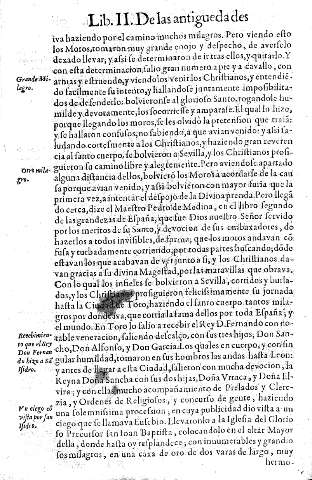 Lib. II. De las antiguedades
iva haziendo por el camino muchos milagros. Pero viendo esto
los Moros, tomaron muy grande enojo y despecho, de averselo
dexado llevar, y assi se determinaron de ir tras ellos, y quitarlo. Y
con esta determinacion, salio gran numero a pie y a cavallo, con
armas y estruendo, y viendolos venir los Christianos, y entendiē-
Grande Mi-
lagro.
do facilmente su intento, y hallandose juntamente impossibilita-
dos de defenderle: bolvieronse al glorioso Santo, rogandole hu-
milde y devotamente, los socorriesse y amparasse. El qual lo hizo,
porque llegando los moros, se les olvidò la pretension que traiā:
y se hallaron confusos, no sabiendo, à que avian venido: y assi sa-
ludando cortesmente a los Christianos, y haziendo gran reveren
cia al santo cuerpo, se bolvieron a Sevilla, y los Christianos prosi-
guieron su camino libre y alegremente. Pero aviendose apartado
Otro mila-
gro.
alguna distancia dellos, bolviò los Moros à acordarse de la cau
sa porque avian venido, y assi bolvieron con mayor furia que la
primera vez, a intentar el despojo de la Divina prenda. Pero llegā
do cerca, dize el Maestro Pedro de Medina, en el libro segundo
de las grandezas de España, que fue Dios nuestro Señor servido
por los meritos de su Santo, y devocion de sus embaxadores, de
hazerlos a todos invisibles, de suerte, que los moros andavan cō
fusa y turbadamente corriendo, por todas partes buscando, dōde
estavan los que acabavan de ver junto a si, y los Christianos da-
van gracias a su divina Magestad, por las maravillas que obrava.
Con lo qual los infieles se bolvieron a Sevilla, corridos y burla-
dos, y los Christianos prosiguieron felicissimamente su jornada
hasta la Ciudad de Toro, haziendo el santo cuerpo tantos mila-
gros por donde iva, que corria la fama dellos por toda España, y
el mundo. En Toro lo salio a recibir el Rey D. Fernando con no-
Recebimien-
to que el Rey
Don Fernan
do hizo a Sā
Isidro.
table veneracion, saliendo descalço, con sus tres hijos, Don San-
cho, Don Alfonso, y Don Garcia. Los quales en cuerpo, y con sin
gular humildad, tomaron en sus hombros las andas hasta Leon:
y antes de llegar a esta Ciudad, salieron con mucha devocion, la
Reyna Doña Sancha con sus dos hijas, Doña Vrraca, y Doña El-
vira; y con ellas mucho acompañamiento de Prelados y Clere-
zia, y Ordenes de Religiosos, y concurso de gente, haziendo
Vn ciego cō
vista por san
Isidro.
una solemnissima procession, en cuya publicidad dio vista a un
ciego que se llamava Eusebio. Llevaronlo a la Iglesia del Glorio
so Precursor san Ioan Baptista, colocandolo en el altar Mayor
della, donde hasta oy resplandece, con innumerables y grandio
sos milagros, en una caxa de oro de dos varas de largo, muy
hermo-